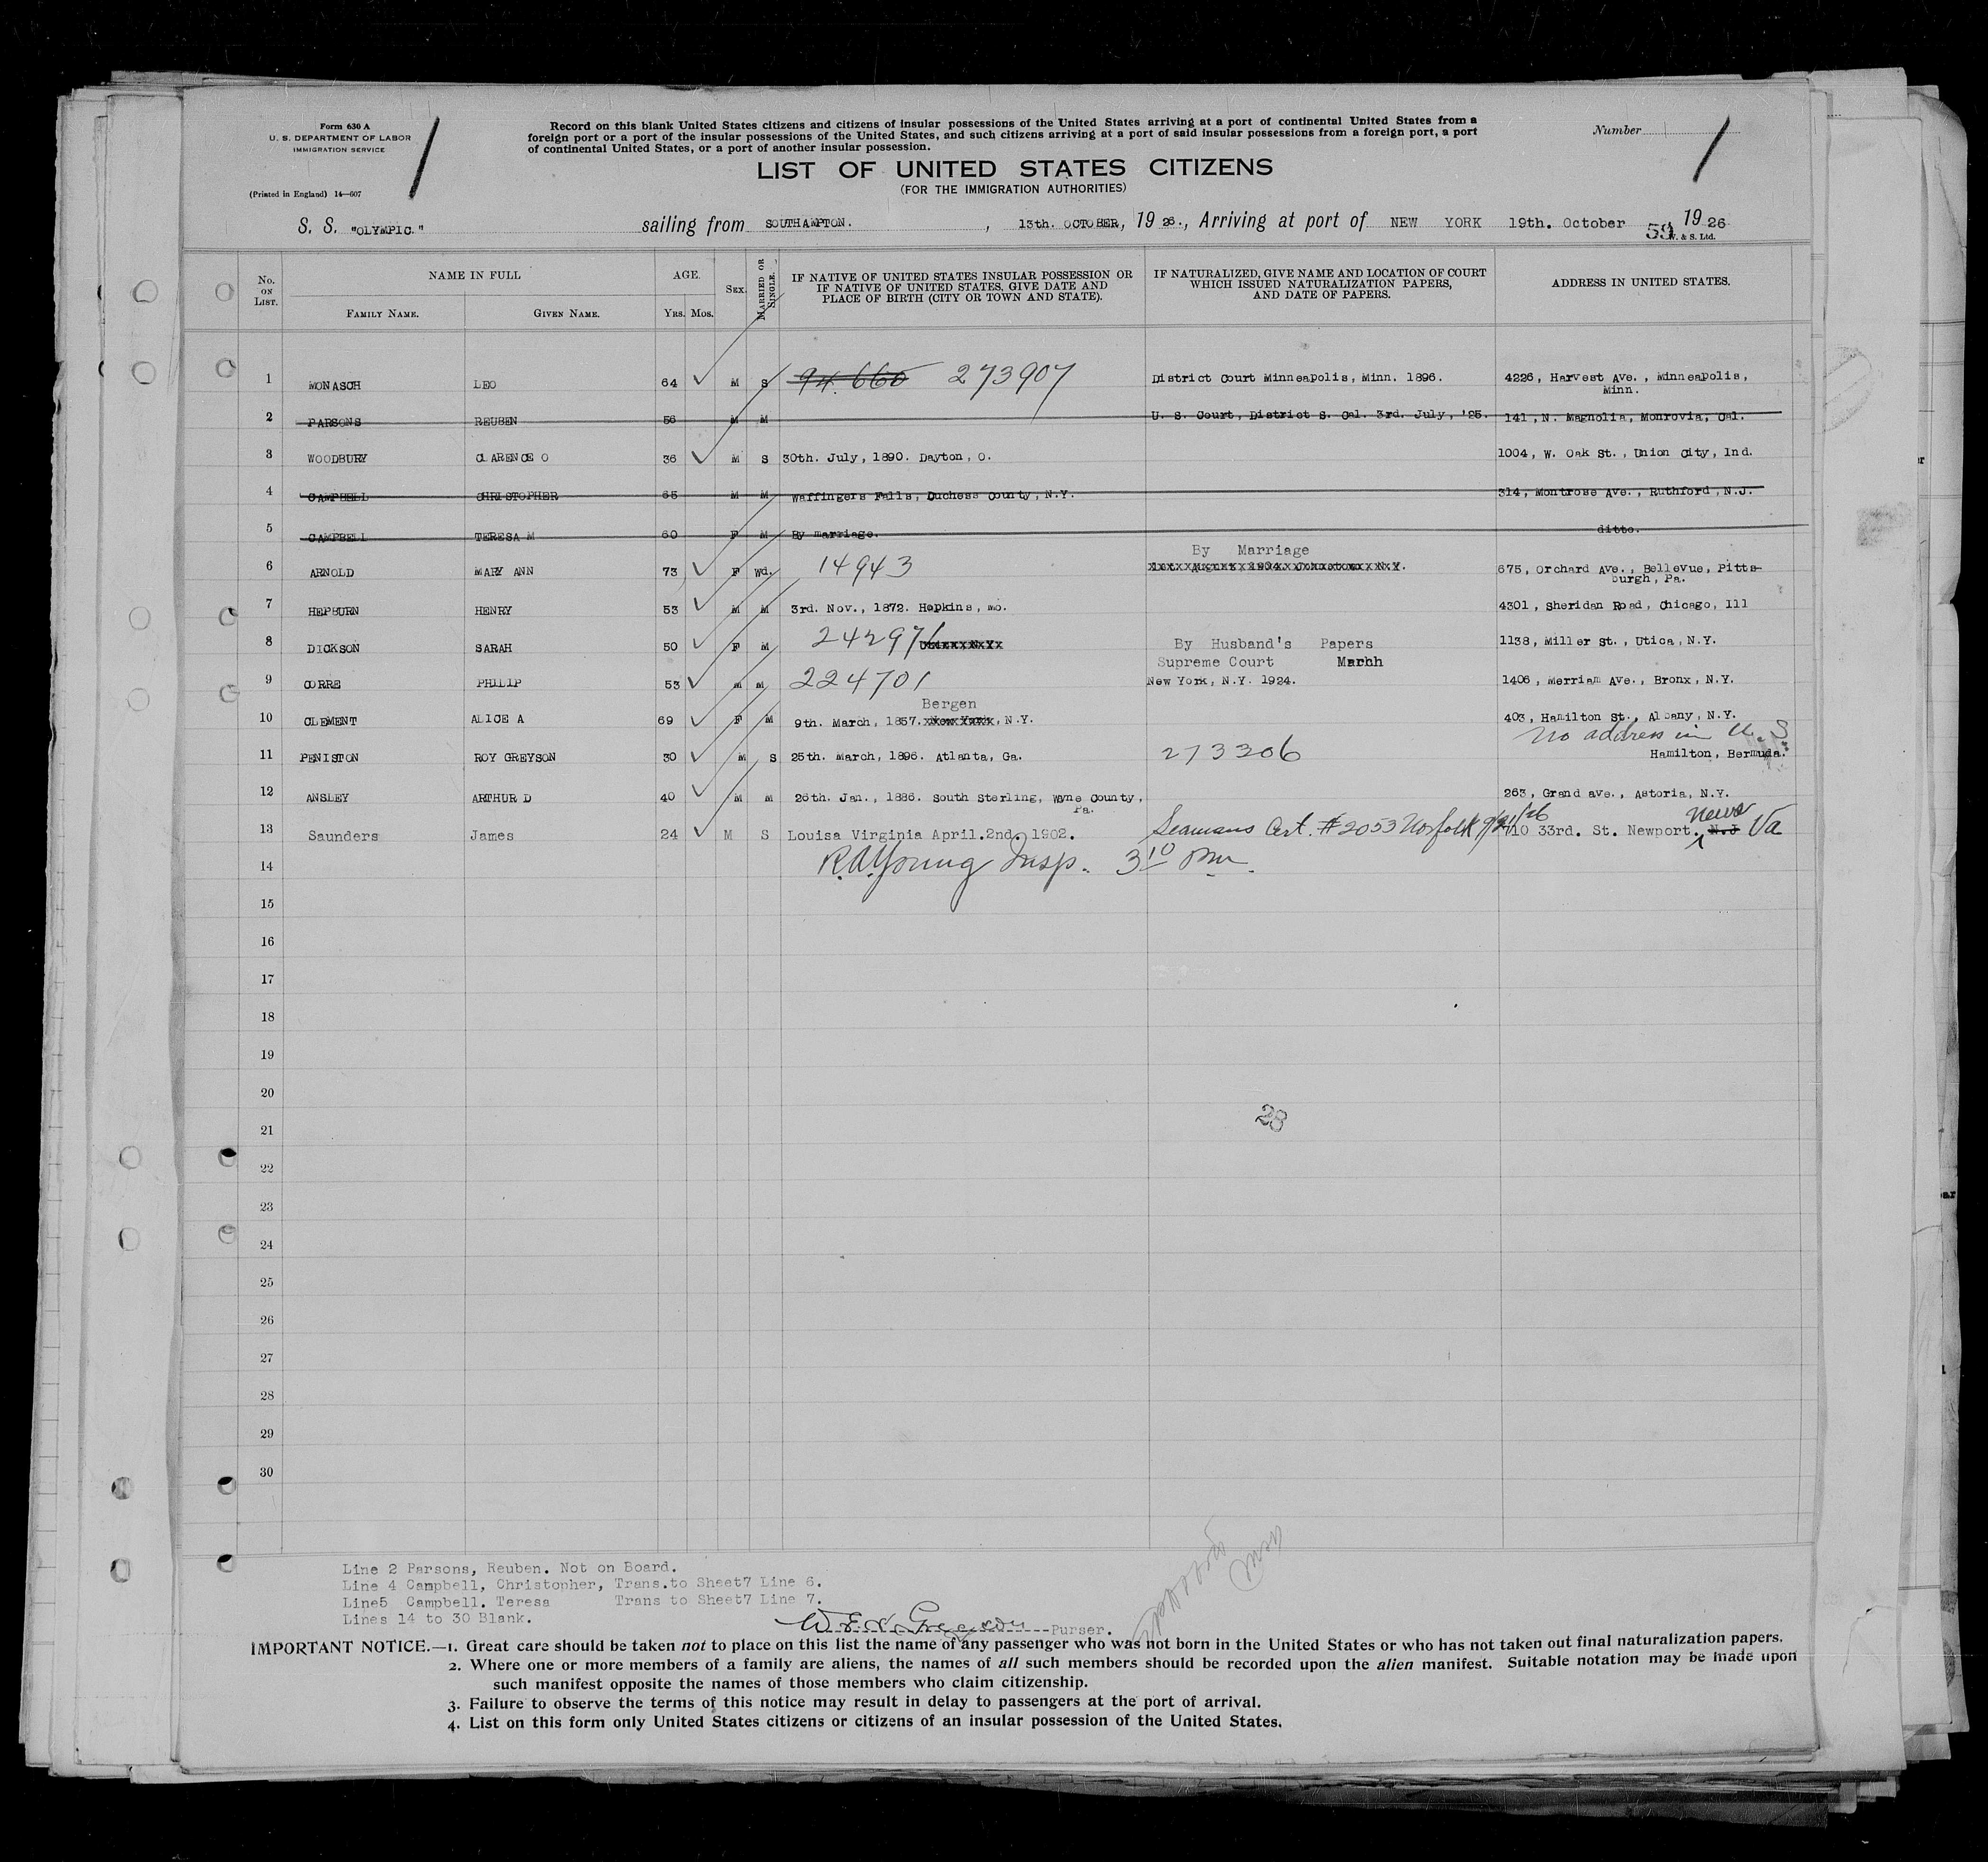 Form 630 A
U. S. DEPARTMENT OF LABOR
IMMIGRATION SERVICE
(Printed in England) 14—607
Record on this blank United States citizens and citizens of insular possessions of the United States arriving at a port of continental United States from a
foreign port or a port of the insular possessions of the United States, and such citizens arriving at a port of said insular possessions from a foreign port, a port
of continental United States, or a port of another insular possession.
Number
LIST OF UNITED STATES CITIZENS
(FOR THE IMMIGRATION AUTHORITIES)
S. S. "OLYMPIC." sailing from SOUTHAMPTON. , 13th. OCTOBER, 19 26., Arriving at port of NEW YORK 19th. October 1926
W. & S. Ltd.
No. ON LIST. NAME IN FULL FAMILY NAME. GIVEN NAME. AGE. YRS. MOS. SEX. MARRIED OR SINGLE. IF NATIVE OF UNITED STATES INSULAR POSSESSION OR IF NATIVE OF UNITED STATES, GIVE DATE AND PLACE OF BIRTH (CITY OR TOWN AND STATE). IF NATURALIZED, GIVE NAME AND LOCATION OF COURT WHICH ISSUED NATURALIZATION PAPERS, AND DATE OF PAPERS. ADDRESS IN UNITED STATES.
1 MONASCH LEO 64 ✓ M S 94660 273907 District Court Minneapolis, Minn. 1896. 4226, Harvest Ave., Minneapolis,
Minn.
2 PARSONS REUBEN 56 M M U. S. Court, District S. Cal. 3rd. July, '25. 141, N. Magnolia, Monrovia, Cal.
3 WOODBURY CLARENCE O 36 ✓ M S 30th. July, 1890. Dayton, O. 1004, W. Oak St., Union City, Ind.
4 CAMPBELL CHRISTOPHER 65 M M Waffingers Falls, Duchess County, N.Y. 314, Montrose Ave., Ruthford, N.J.
5 CAMPBELL TERESA M 60 F M By marriage. ditto.
By Marriage
6 ARNOLD MARY ANN 73 ✓ F Wd. 14943 675, Orchard Ave., Bellevue, Pitts-
burgh, Pa.
7 HEPBURN HENRY 53 ✓ M M 3rd. Nov., 1872. Hopkins, Mo. 4301, Sheridan Road, Chicago, Ill
8 DICKSON SARAH 50 ✓ F M 242971 By Husband's Papers 1138, Miller St., Utica, N.Y.
Supreme Court March
9 CORRE PHILIP 53 ✓ M M 224701 New York, N.Y. 1924. 1406, Merriam Ave., Bronx, N.Y.
Bergen
10 CLEMENT ALICE A 69 ✓ F M 9th. March, 1857. New York, N.Y. 403, Hamilton St., Albany, N.Y.
No address in U. S.
11 PENISTON ROY GREYSON 30 ✓ M S 25th. March, 1896. Atlanta, Ga. 273306 Hamilton, Bermuda.
12 ANSLEY ARTHUR D 40 ✓ M M 26th. Jan., 1886. South Sterling, Wyne County, 263, Grand ave., Astoria, N.Y.
Pa.
13 Saunders James 24 ✓ M S Louisa Virginia April.2nd, 1902. Seamans Cert. #2053 Norfolk 9/21/26 710 33rd. St. Newport. News N.J Va
14 R.A.Young Insp. 3¹⁰ Pm.
15
16
17
18
19
20
21
28
22
23
24
25
26
27
28
29
30
Line 2 Parsons, Reuben. Not on Board.
Line 4 Campbell, Christopher, Trans.to Sheet7 Line 6.
Line5 Campbell. Teresa Trans to Sheet7 Line 7.
Lines 14 to 30 Blank.
Purser.
IMPORTANT NOTICE.—1. Great care should be taken not to place on this list the name of any passenger who was not born in the United States or who has not taken out final naturalization papers.
2. Where one or more members of a family are aliens, the names of all such members should be recorded upon the alien manifest. Suitable notation may be made upon
such manifest opposite the names of those members who claim citizenship.
3. Failure to observe the terms of this notice may result in delay to passengers at the port of arrival.
4. List on this form only United States citizens or citizens of an insular possession of the United States.